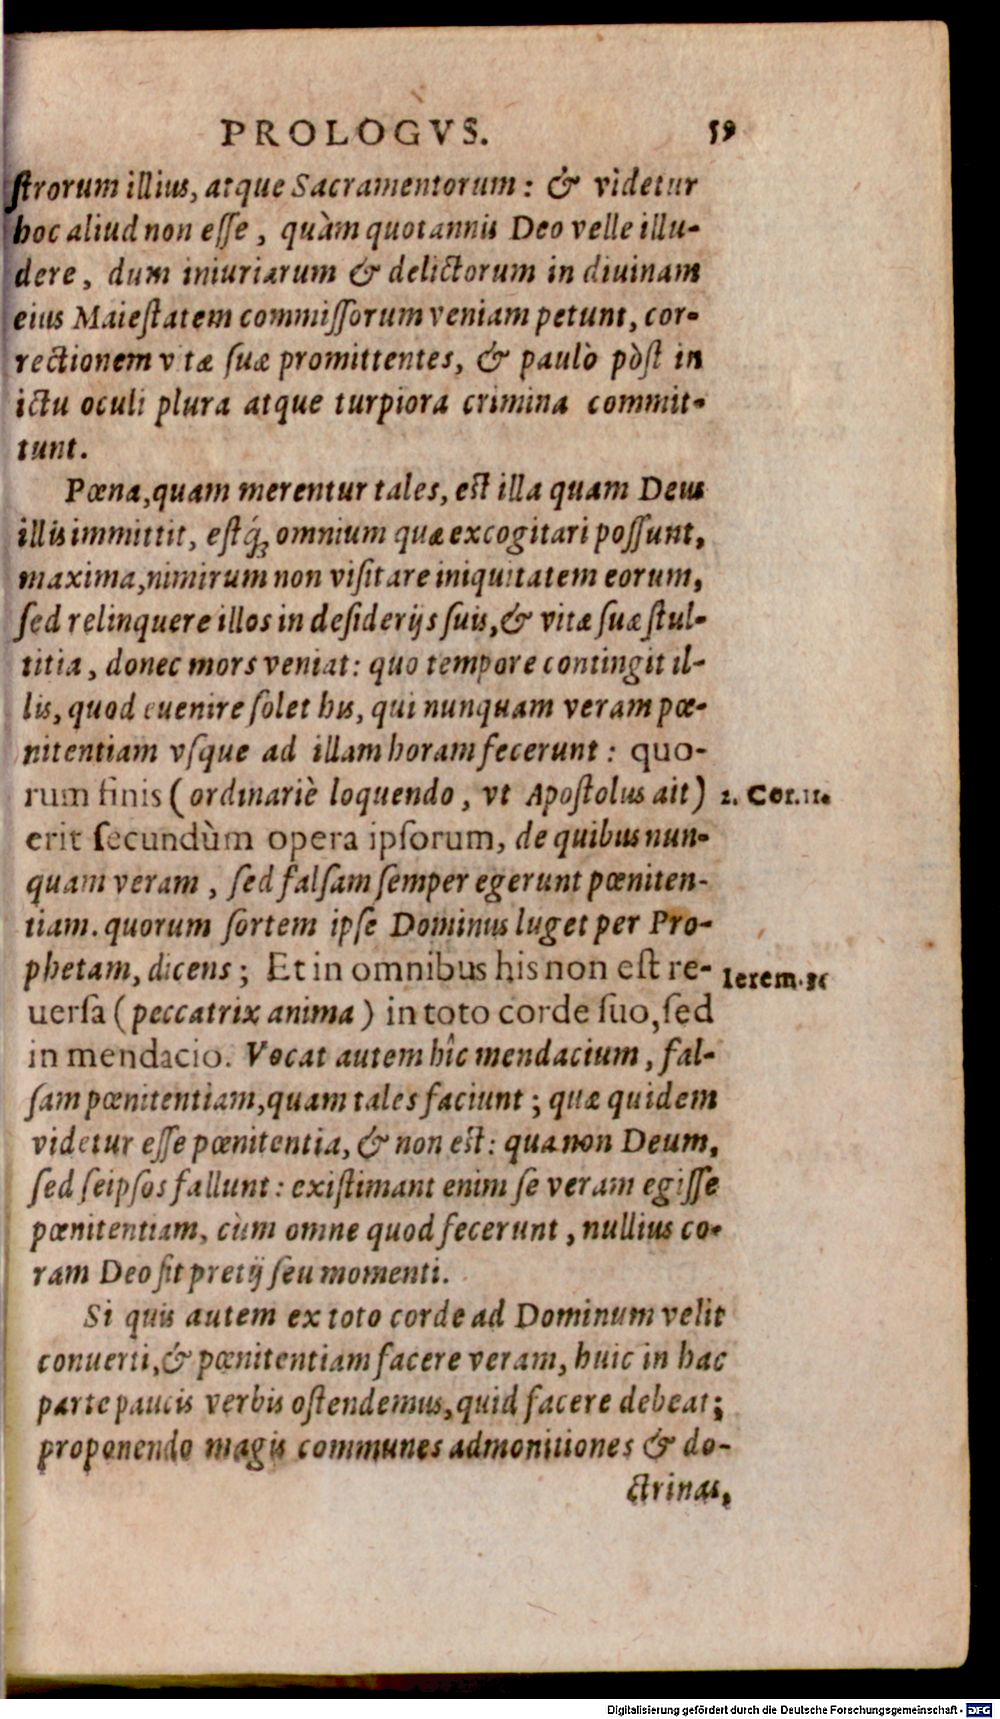 PROLOGVS. 59
ſtrorum illius, atque Sacramentorum: & videtur
hoc aliud non eſſe, quàm quotannis Deo velle illu-
dere, dum iniuriarum & delictorum in diuinam
eius Maieſtatem commiſſorum veniam petunt, cor-
rectionem vitæ ſuæ promittentes, & paulò pòſt in
ictu oculi plura atque turpiora crimina commit-
tunt.
Pœna, quam merentur tales, eſt illa quam Deus
illis immittit, eſtq́; omnium quæ excogitari poſſunt,
maxima, nimirum non viſitare iniquitatem eorum,
ſed relinquere illos in deſiderijs ſuis, & vitæ ſuæ ſtul-
titia, donec mors veniat: quo tempore contingit il-
lis, quod euenire ſolet his, qui nunquam veram pœ-
nitentiam vſque ad illam horam fecerunt: quo-
rum finis (ordinariè loquendo, vt Apoſtolus ait) 2. Cor. 11.
erit ſecundùm opera ipſorum, de quibus nun-
quam veram, ſed falſam ſemper egerunt pœniten-
tiam. quorum ſortem ipſe Dominus luget per Pro-
phetam, dicens; Et in omnibus his non eſt re- Ierem.
uerſa (peccatrix anima) in toto corde ſuo, ſed
in mendacio. Vocat autem hîc mendacium, fal-
ſam pœnitentiam, quam tales faciunt; quæ quidem
videtur eſſe pœnitentia, & non eſt: qua non Deum,
ſed ſeipſos fallunt: exiſtimant enim ſe veram egiſſe
pœnitentiam, cùm omne quod fecerunt, nullius co-
ram Deo ſit pretij ſeu momenti.
Si quis autem ex toto corde ad Dominum velit
conuerti, & pœnitentiam facere veram, huic in hac
parte paucis verbis oſtendemus, quid facere debeat;
proponendo magis communes admonitiones & do-
ctrinas,
Digitalisierung gefördert durch die Deutsche Forschungsgemeinschaft - DFG